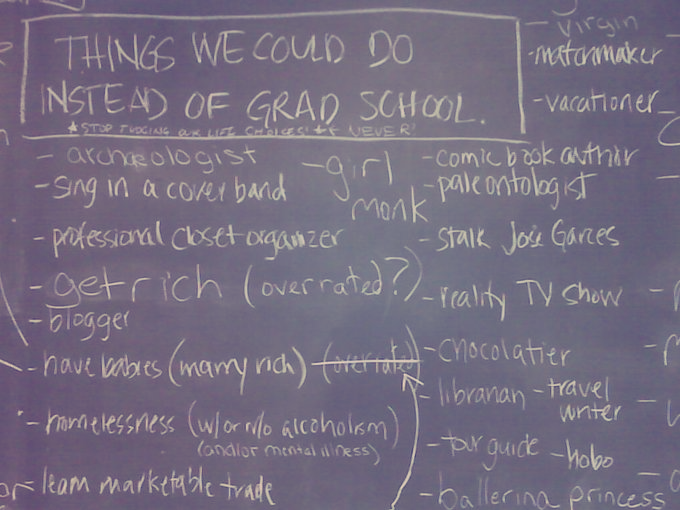 THINGS WE COULD DO
INSTEAD OF GRAD SCHOOL.
★STOP JUDGING OUR LIFE CHOICES!★ ← NEVER!
- archaeologist
- sing in a cover band
- professional closet organizer
- get rich (overrated?)
- blogger
- have babies (marry rich) (overrated)
- homelessness (w/or w/o alcoholism)
(and/or mental illness)
- learn marketable trade
- girl
monk
- virgin
- matchmaker
- vacationer
- comic book author
- paleontologist
- stalk Jose Garces
- reality TV show
- chocolatier
- librarian - travel
writer
- tour guide - hobo
- ballerina princess